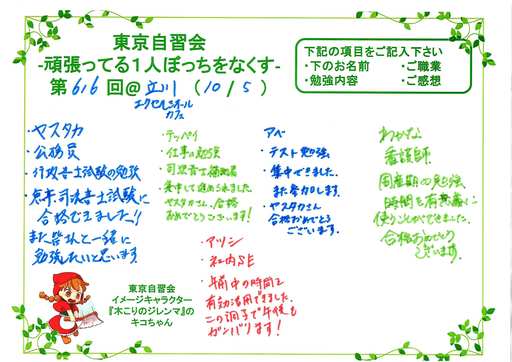 東京自習会
-頑張ってる１人ぼっちをなくす-
第616回＠立川（10/5）
エクセルシオール
カフェ
下記の項目をご記入下さい
・下のお名前　・ご職業
・勉強内容　・ご感想
・ヤスタカ
・公務員
・行政書士試験の勉強
・去年、司法書士試験に
合格できました!!
また皆さんと一緒に
勉強したいと思います
・テッペイ
・仕事の勉強
・司法書士補助者
・集中して進められました
ヤスタカさん、合格
おめでとうございます!
アベ
・テスト勉強
・集中できました。
また努力します。
・ヤスタカさん
合格おめでとう
ございます。
わかな
看護師
周産期の勉強
時間を有意義に
使うことができました。
合格おめでとう
ございます。
・アツシ
・社内SE
・午前中の時間を
有効活用できました。
この調子で午後も
ガンバります!
東京自習会
イメージキャラクター
『木こりのジレンマ』の
キコちゃん